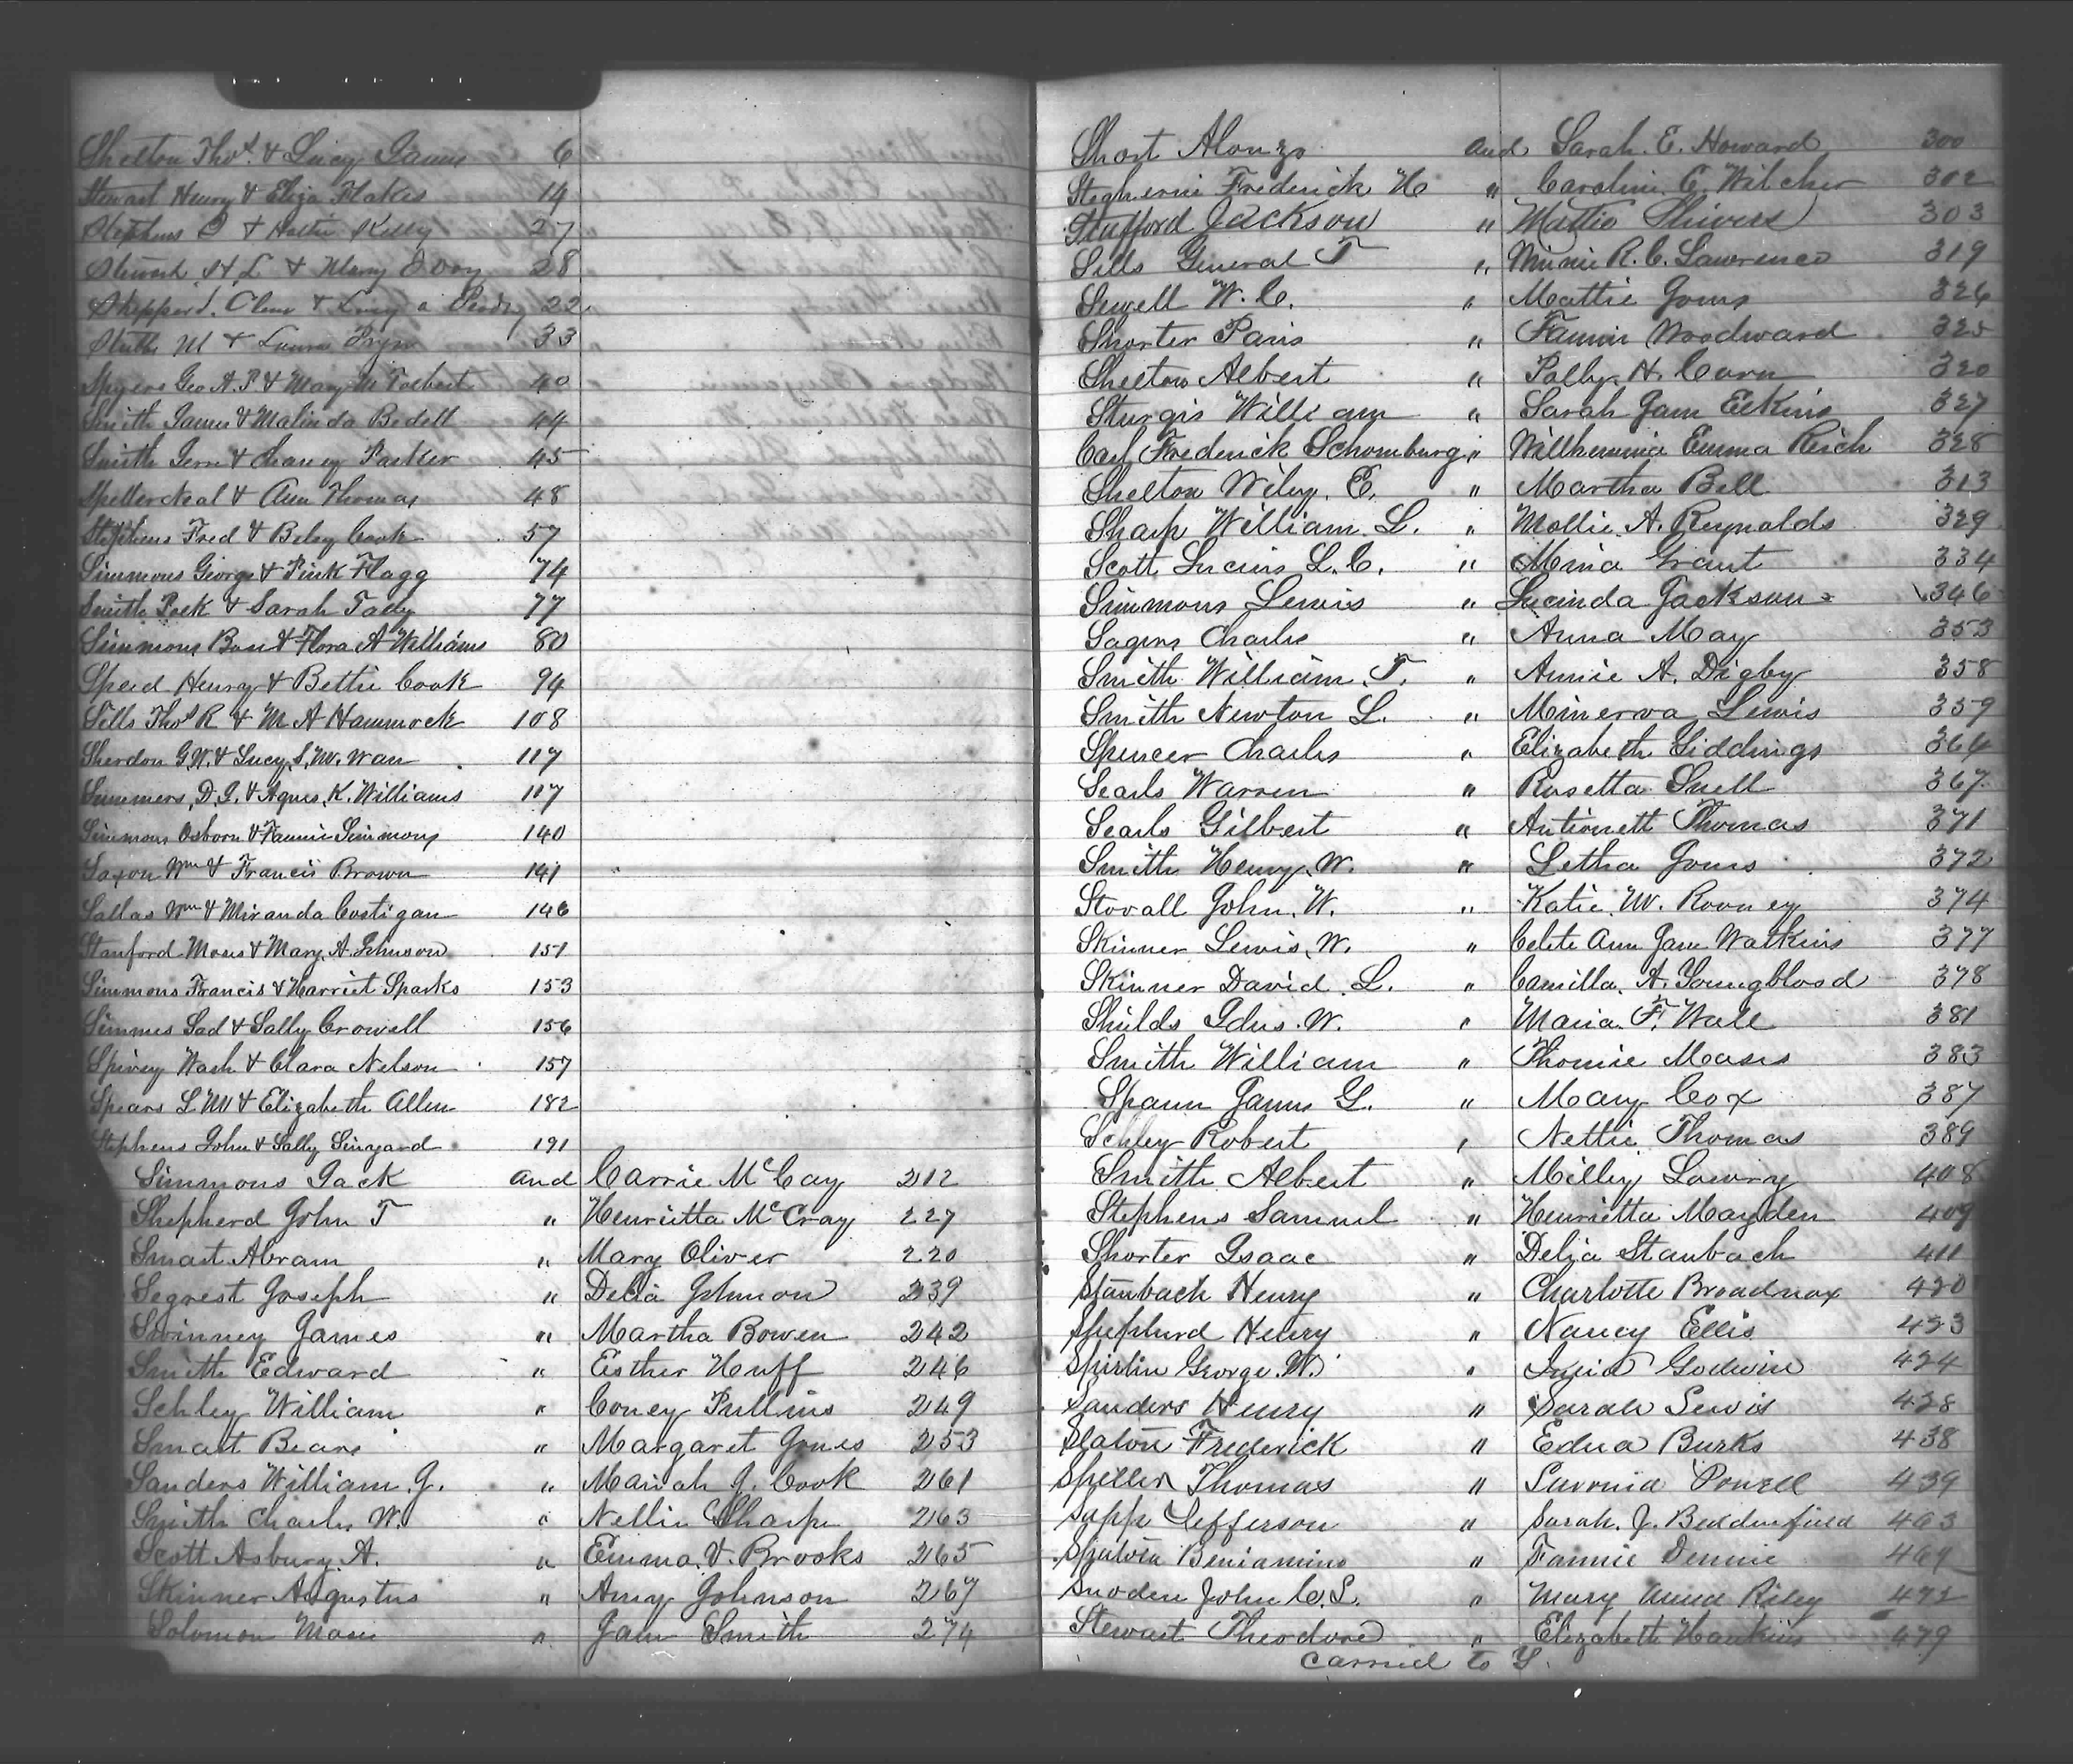 Shelton Thos. & Lucy James 6
Stewart Henry & Eliza Flakes 14
Stephens & Hattie Kelly 27
Stewart H L & Mary 28
Sheppard. & Lucy a 22
M & Laura Pryor 33
Spyers Geo A. P & Mary M Torbert 40
Smith James & Malinda Bedell 44
Smith Jern & Chancy Parker 45
Speller Neal & Ann Thomas 48
Stephens Fred & Betsy Cook 57
Simmons George & Pink Flagg 74
Smith Peek & Sarah Tally 77
Simmons & Flora A Williams 80
Speed Henry & Bettie Cook 94
Sills Thos R & M A Hammock 108
Sherdon G. W. & Lucy S. M. Wan 117
Summers, D. G. & Agnes, K. Williams 117
Simmons Osborn & Fannie Simmons 140
Saxon Wm & Francis Brown 141
Sallas Wm & Miranda Costigan 146
Stanford Moses & Mary, A. Johnson 151
Simmons Francis & Harriet Sparks 153
Simmes Sad & Sally Crowell 156
Spivey Wash & Clara Nelson 157
Spears L M & Elizabeth Allen 182
Stephens John & Sally Sinyard 191
Simmons Jack and Carrie McCay 212
Shepherd John T " Henrietta McCray 227
Smart Abram " Mary Oliver 220
Segrest Joseph " Delia Johnson 239
Swinney James " Martha Bowen 242
Smith Edward " Esther Huff 246
Schley William " Coney Pullins 249
Smart " Margaret Jones 253
Sanders William J. " Mariah J. Cook 261
Smith Charles W. " Nellie Sharpe 263
Scott Asbury A. " Emma. V. Brooks 265
Skinner Augustus " Amy Johnson 267
Solomon Moses " Jane Smith 274
Short Alonzo and Sarah. E. Howard 300
Frederick H " Caroline C. Wilcher 302
Stafford Jackson " Mattie Shivers 303
Sills General T " Minnie R. C. Lawrence 319
Sewell W. C. " Mattie Jones 326
Shorter Paris " Fannie Woodward 325
Shelton Albert " Polly H. Corn 320
Sturgis William " Sarah Jane Elkins 327
Carl Frederick Schomburg " Willhemina Emma Reich 328
Shelton Wiley. E. " Martha Bell 313
Sharp William L. " Mollie A. Reynolds 329
Scott Lucius L. C. " Mina Grant 334
Simmons Lewis " Lucinda Jackson 346
Sagers Charlie " Anna May 353
Smith William. T. " Annie A. Digby 358
Smith Newton L. " Minerva Lewis 359
Spencer Charles " Elizabeth Giddings 364
Searls Warren " Rosetta Snell 367
Searls Gilbert " Antionett Thomas 371
Smith Henry. W. " Letha Jones 372
Stovall John. W. " Katie. W. Rooney 374
Skinner Lewis. W. " Celete Ann Jane Watkins 377
Skinner David. L. " Camilla. A. Youngblood 378
Shields W. " Maria. F. Wall 381
Smith William " Thomie Moses 383
Spann James G. " Mary Cox 387
Schley Robert " Nettie Thomas 389
Smith Albert " Milley Lowry 408
Stephens Samuel " Henrietta Mayden 409
Shorter Isaac " Delia Stanbach 411
Stanbach Henry " Charlotte Broadnax 420
Shepherd Henry " Nancy Ellis 423
Spirlin George. W. " Godwin 424
Sanders Henry " Sarah Lewis 428
Slaton Frederick " Edna Burks 438
Speller Thomas " Luvenia Powell 439
Sapp Jefferson " Sarah. J. Beddenfield 463
Benjamine " Fannie Dennie 467
Snoden John C. L. " Mary Riley 472
Stewart Theodore " Elizabeth Hawkins 479
carried to Y.